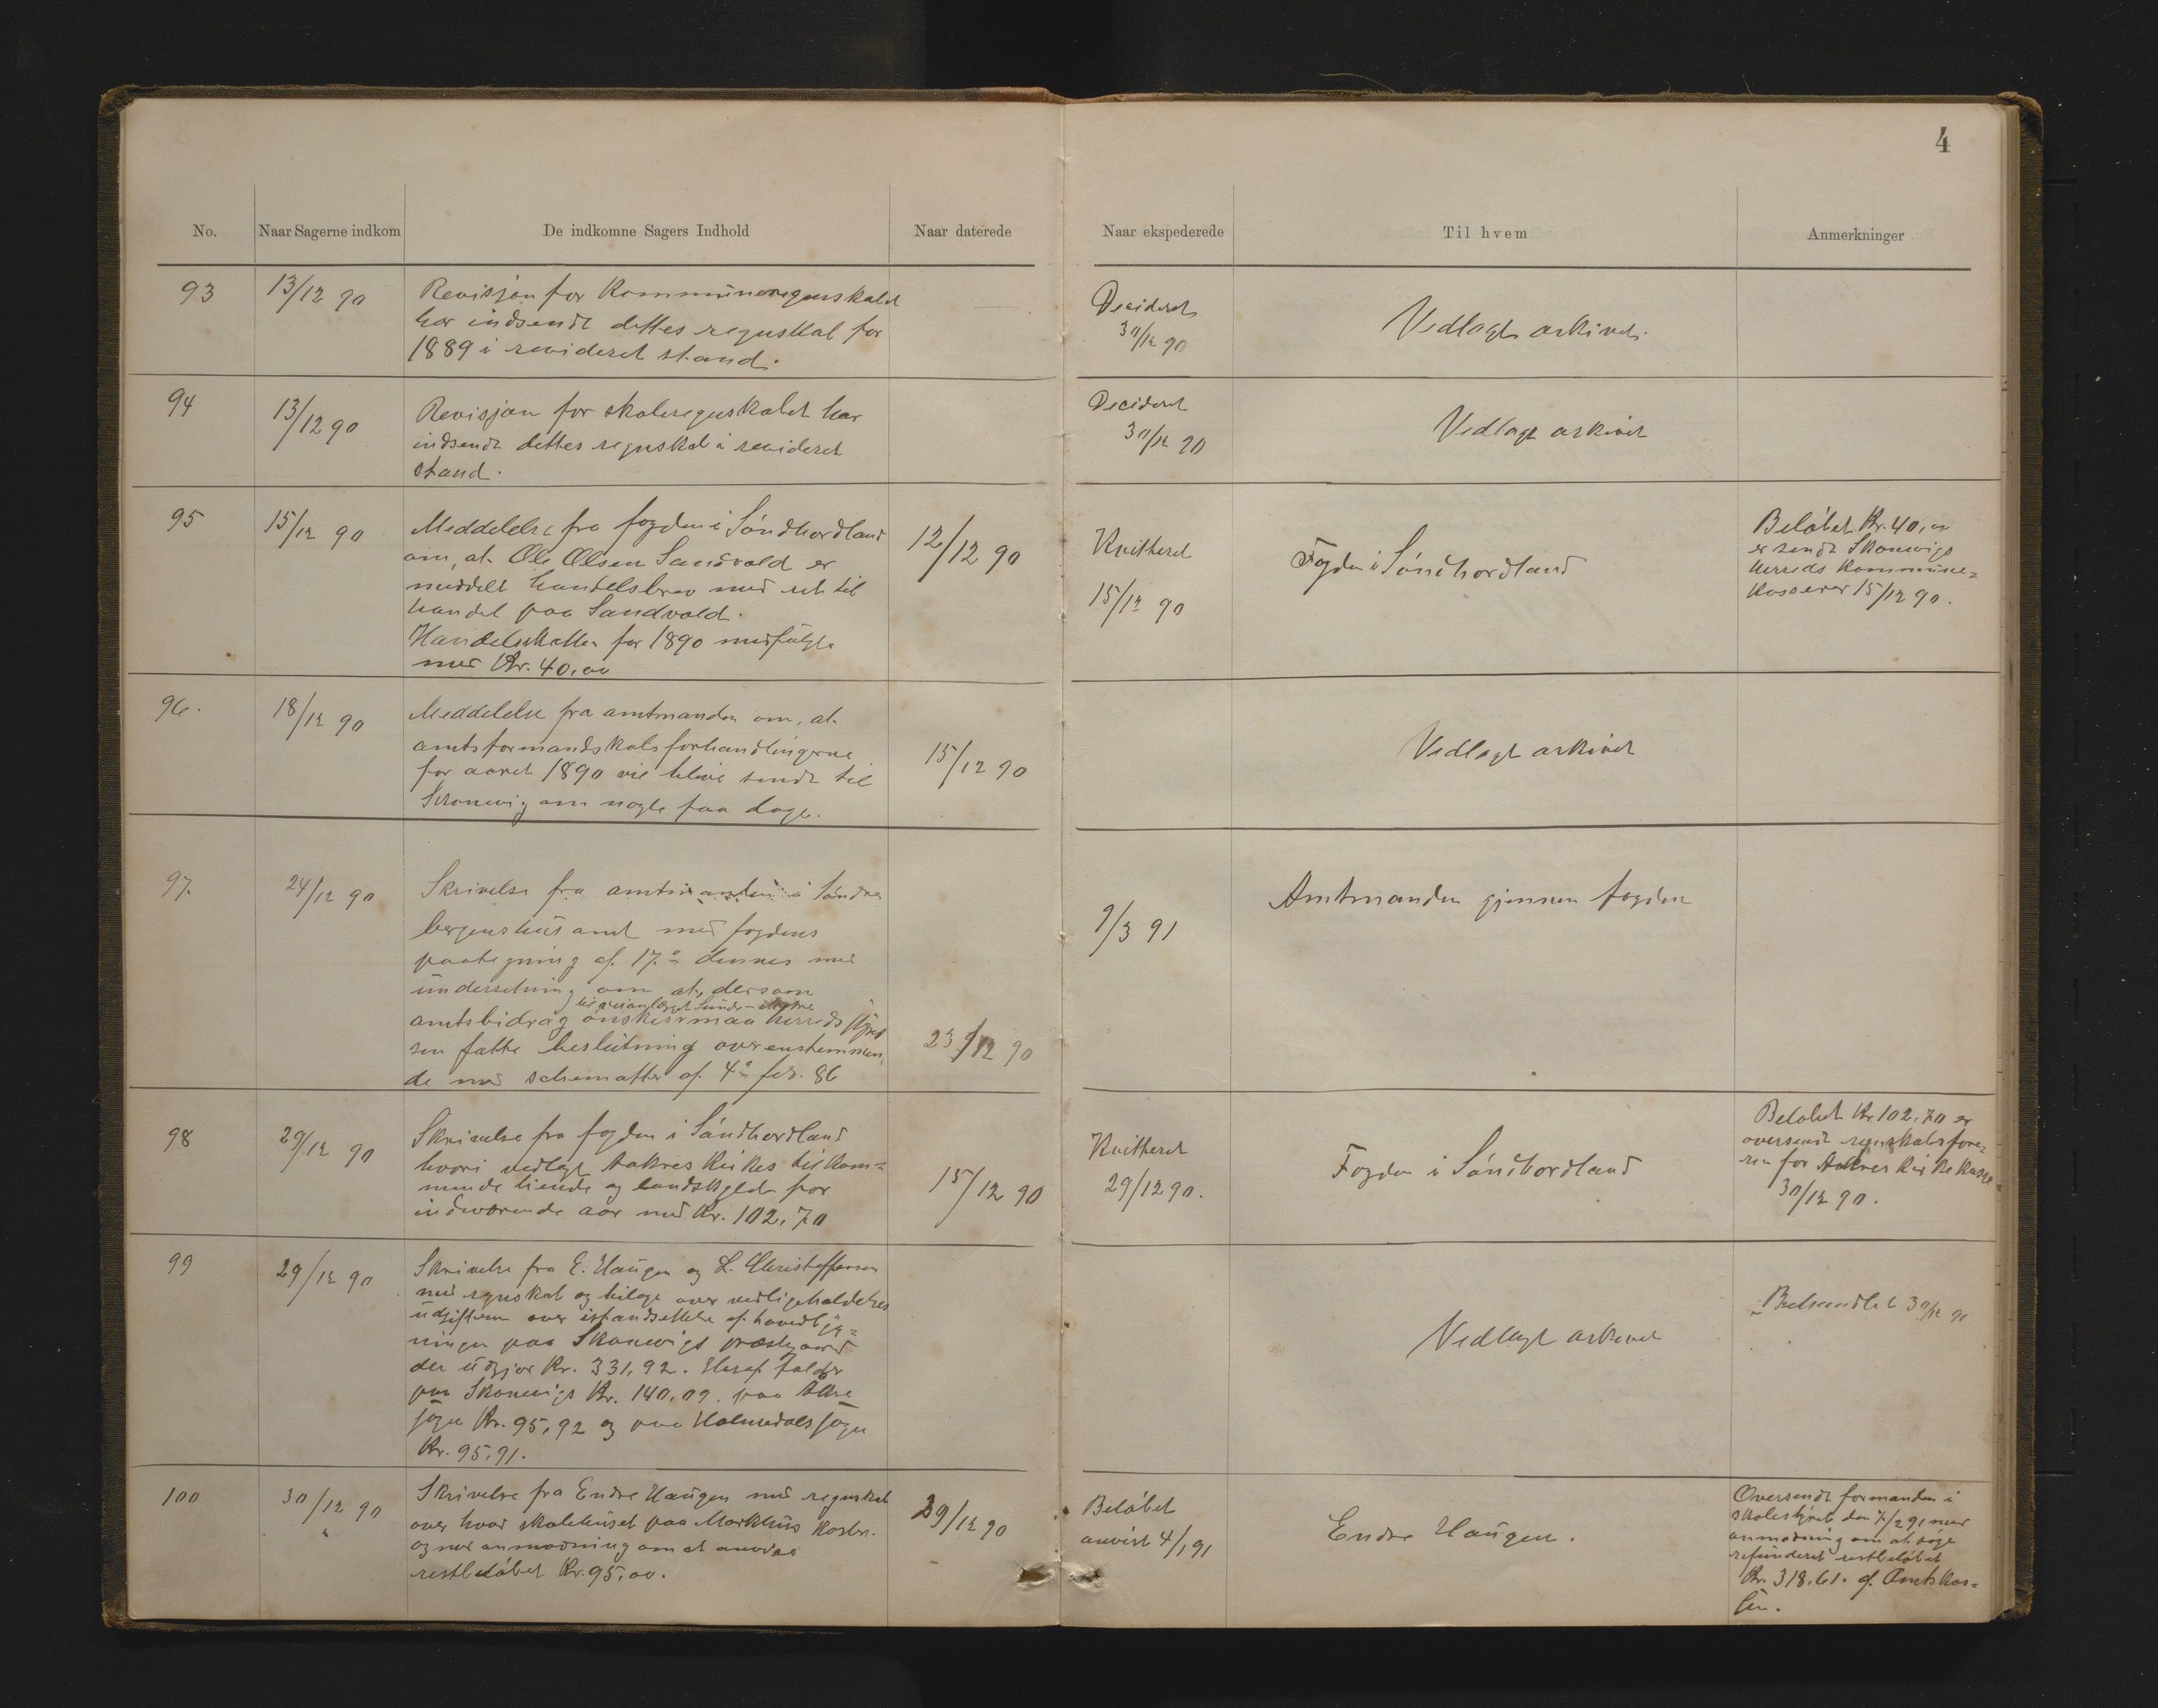 4
No. Naar Sagerne indkom De indkomne Sagers Indhold Naar daterede Naar ekspederede Til hvem Anmerkninger
93 13/12 90 Revisjon for Kommuneregnskabet
har indsendt dettes regnskab for
1889 i revideret stand.
Decideret
30/12 90
Vedlagt arkivet.
94 13/12 90 Revisjon for skoleregnskabet har
indsendt dettes regnskab i revideret
stand.
Decideret
30/12 90
Vedlagt arkivet
95 15/12 90 Meddelelse fra fogden i Söndhordland
om, at Ole Olsen Sandvold er
meddelt handelsbrev med ret til
handel paa Sandvold.
Handelsskatten for 1890 medfulgte
med Kr. 40,00
12/12 90
Kvitteret
15/12 90
Fogden i Söndhordland
Belöbet Kr. 40,00
er sendt Skonevigs
herreds Kommune=
kasserer 15/12 90.
96. 18/12 90 Meddelelse fra amtmanden om, at
amtsformandskabsforhandlingerne
for aaret 1890 vil blive sendt til
Skonevig om nogle faa dage.
15/12 90
Vedlagt arkivet
97. 24/12 90 Skrivelse fra amtmanden i Söndre
bergenhus amt med fogdens
paategning af 17de dennes med
underretning om at, dersom
til veianlæget
amtsbidrag önskes maa herredsstyrel
sen fatte beslutning overenstemmen,
de med schematter af 4de feb. 86
23/12 90
9/3 91
Amtmanden gjennem fogden
98 29/12 90 Skrivelse fra fogden i Söndhordland
hvori vedlagt Aakres Kirkes tilkom=
mende tiende og landskyld for
indeværende aar med Kr. 102,70
15/12 90
Kvitteret
29/12 90.
Fogden i Söndhordland
Belöbet Kr 102,70 er
oversendt regnskabsföre=
ren for Aakres Kirkekasse
30/12 90.
99 29/12 90 Skrivelse fra E. Haugen og L. Christoffersen
med regnskab og bilage over vedligeholdelses
udgifterne over istandsettelse af hovedbyg=
ningen paa Skonevigs præstegaard
der udgjør Kr. 331,92. Heraf falder
paa Skonevigs Kr. 140,09. paa Akre
sogn Kr. 95,92 og paa Holmedals sogn
Kr. 95,91.
Vedlagt arkivet
Behandlet 30/12 90
100 30/12 90 Skrivelse fra Endre Haugen med regnskab
over hvad skolehuset paa Markhus koster.
og med anmodning om at anvise
restbelöbet Kr. 95,00.
29/12 90
Belöbet
anvist 4/1 91
Endre Haugen.
Oversendt formanden i
skolestyret den 7/2 91 med
anmodning om at söge
refunderet restbelöbet
Kr. 318,61. af Amtskas=
sen.